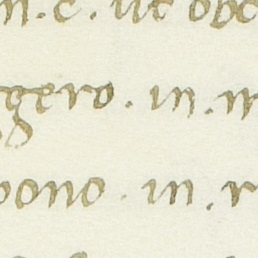 n.c. ut obe
gero. in. m
pono. in. r